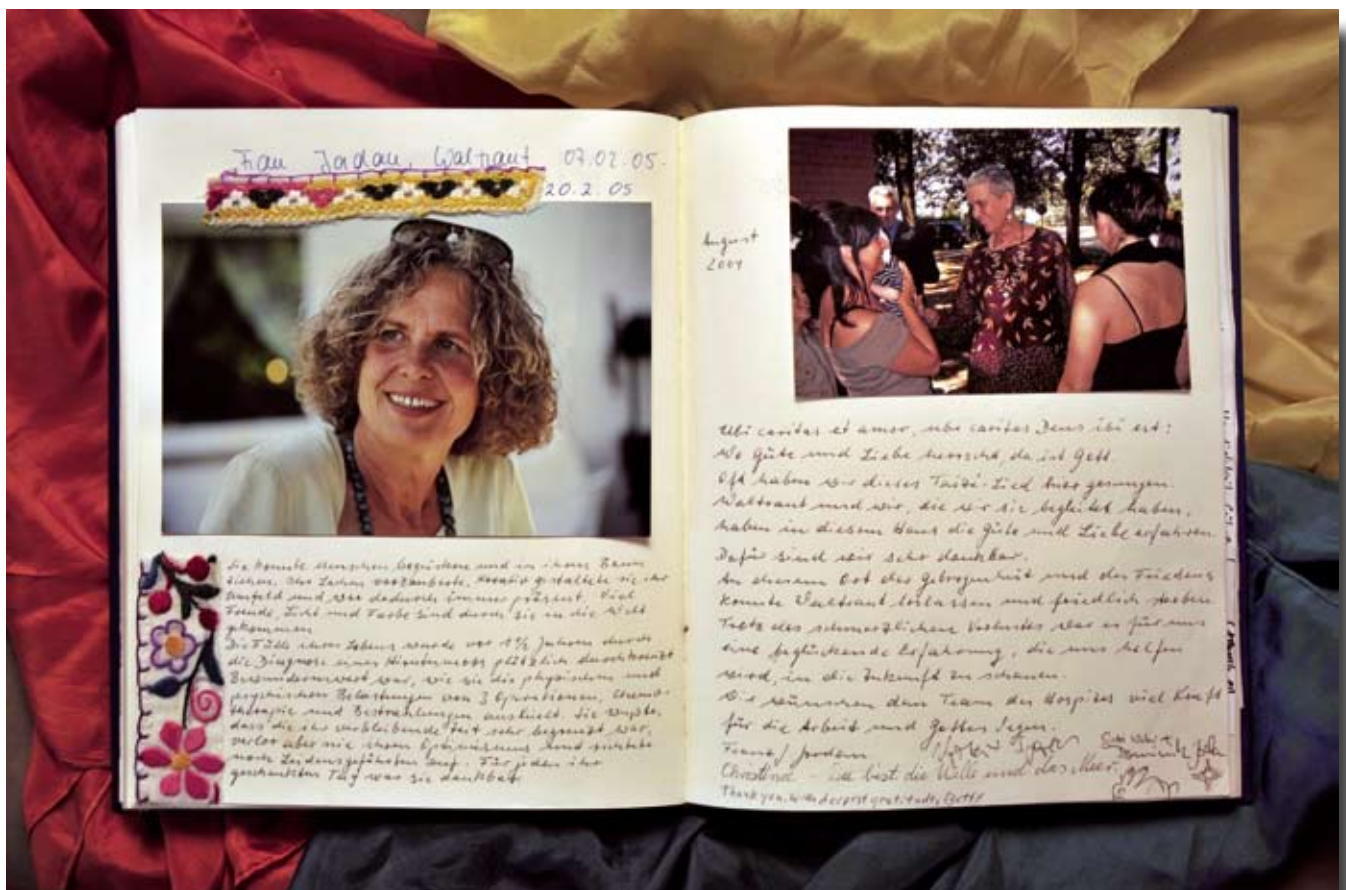 Frau Jordan, Waltraut 07.02.05-
20.2.05
Sie konnte Menschen beglücken und in ihren Bann
ziehen. Ihr Lachen verzauberte, kreativ gestaltete sie ihr
Umfeld und war dadurch immer präsent. Viel
Freude, Licht und Farbe sind durch sie in die Welt
gekommen
Die Fülle ihres Lebens wurde vor 1½ Jahren durch
die Diagnose eines Hirntumors plötzlich durchkreuzt
Bewundernswert war, wie sie die physischen und
psychischen Belastungen von 3 Operationen, Chemo-
therapie und Bestrahlungen aushielt. Sie wußte,
dass die ihr verbleibende Zeit sehr begrenzt war,
verlor aber nie ihren Optimismus und richtete
noch Leidensgefährten auf. Für jeden ihr
geschenkten Tag war sie dankbar
August
2004
Ubi caritas et amor, ubi caritas Deus ibi est:
Wo Güte und Liebe herrscht, da ist Gott.
Oft haben wir dieses Taizé-Lied hier gesungen.
Waltraut und wir, die wir sie begleitet haben,
haben in diesem Haus die Güte und Liebe erfahren
Dafür sind wir sehr dankbar.
An diesem Ort der Geborgenheit und des Friedens
konnte Waltraut loslassen und friedlich sterben
Trotz des schmerzlichen Verlustes war es für uns
eine beglückende Erfahrung, die uns helfen
wird, in die Zukunft zu schauen.
Wir wünschen dem Team des Hospizes viel Kraft
für die Arbeit und Gottes Segen.
Jordan
Christine - Du bist die Welle und das Meer.
Thank you. With deepest gratitude,